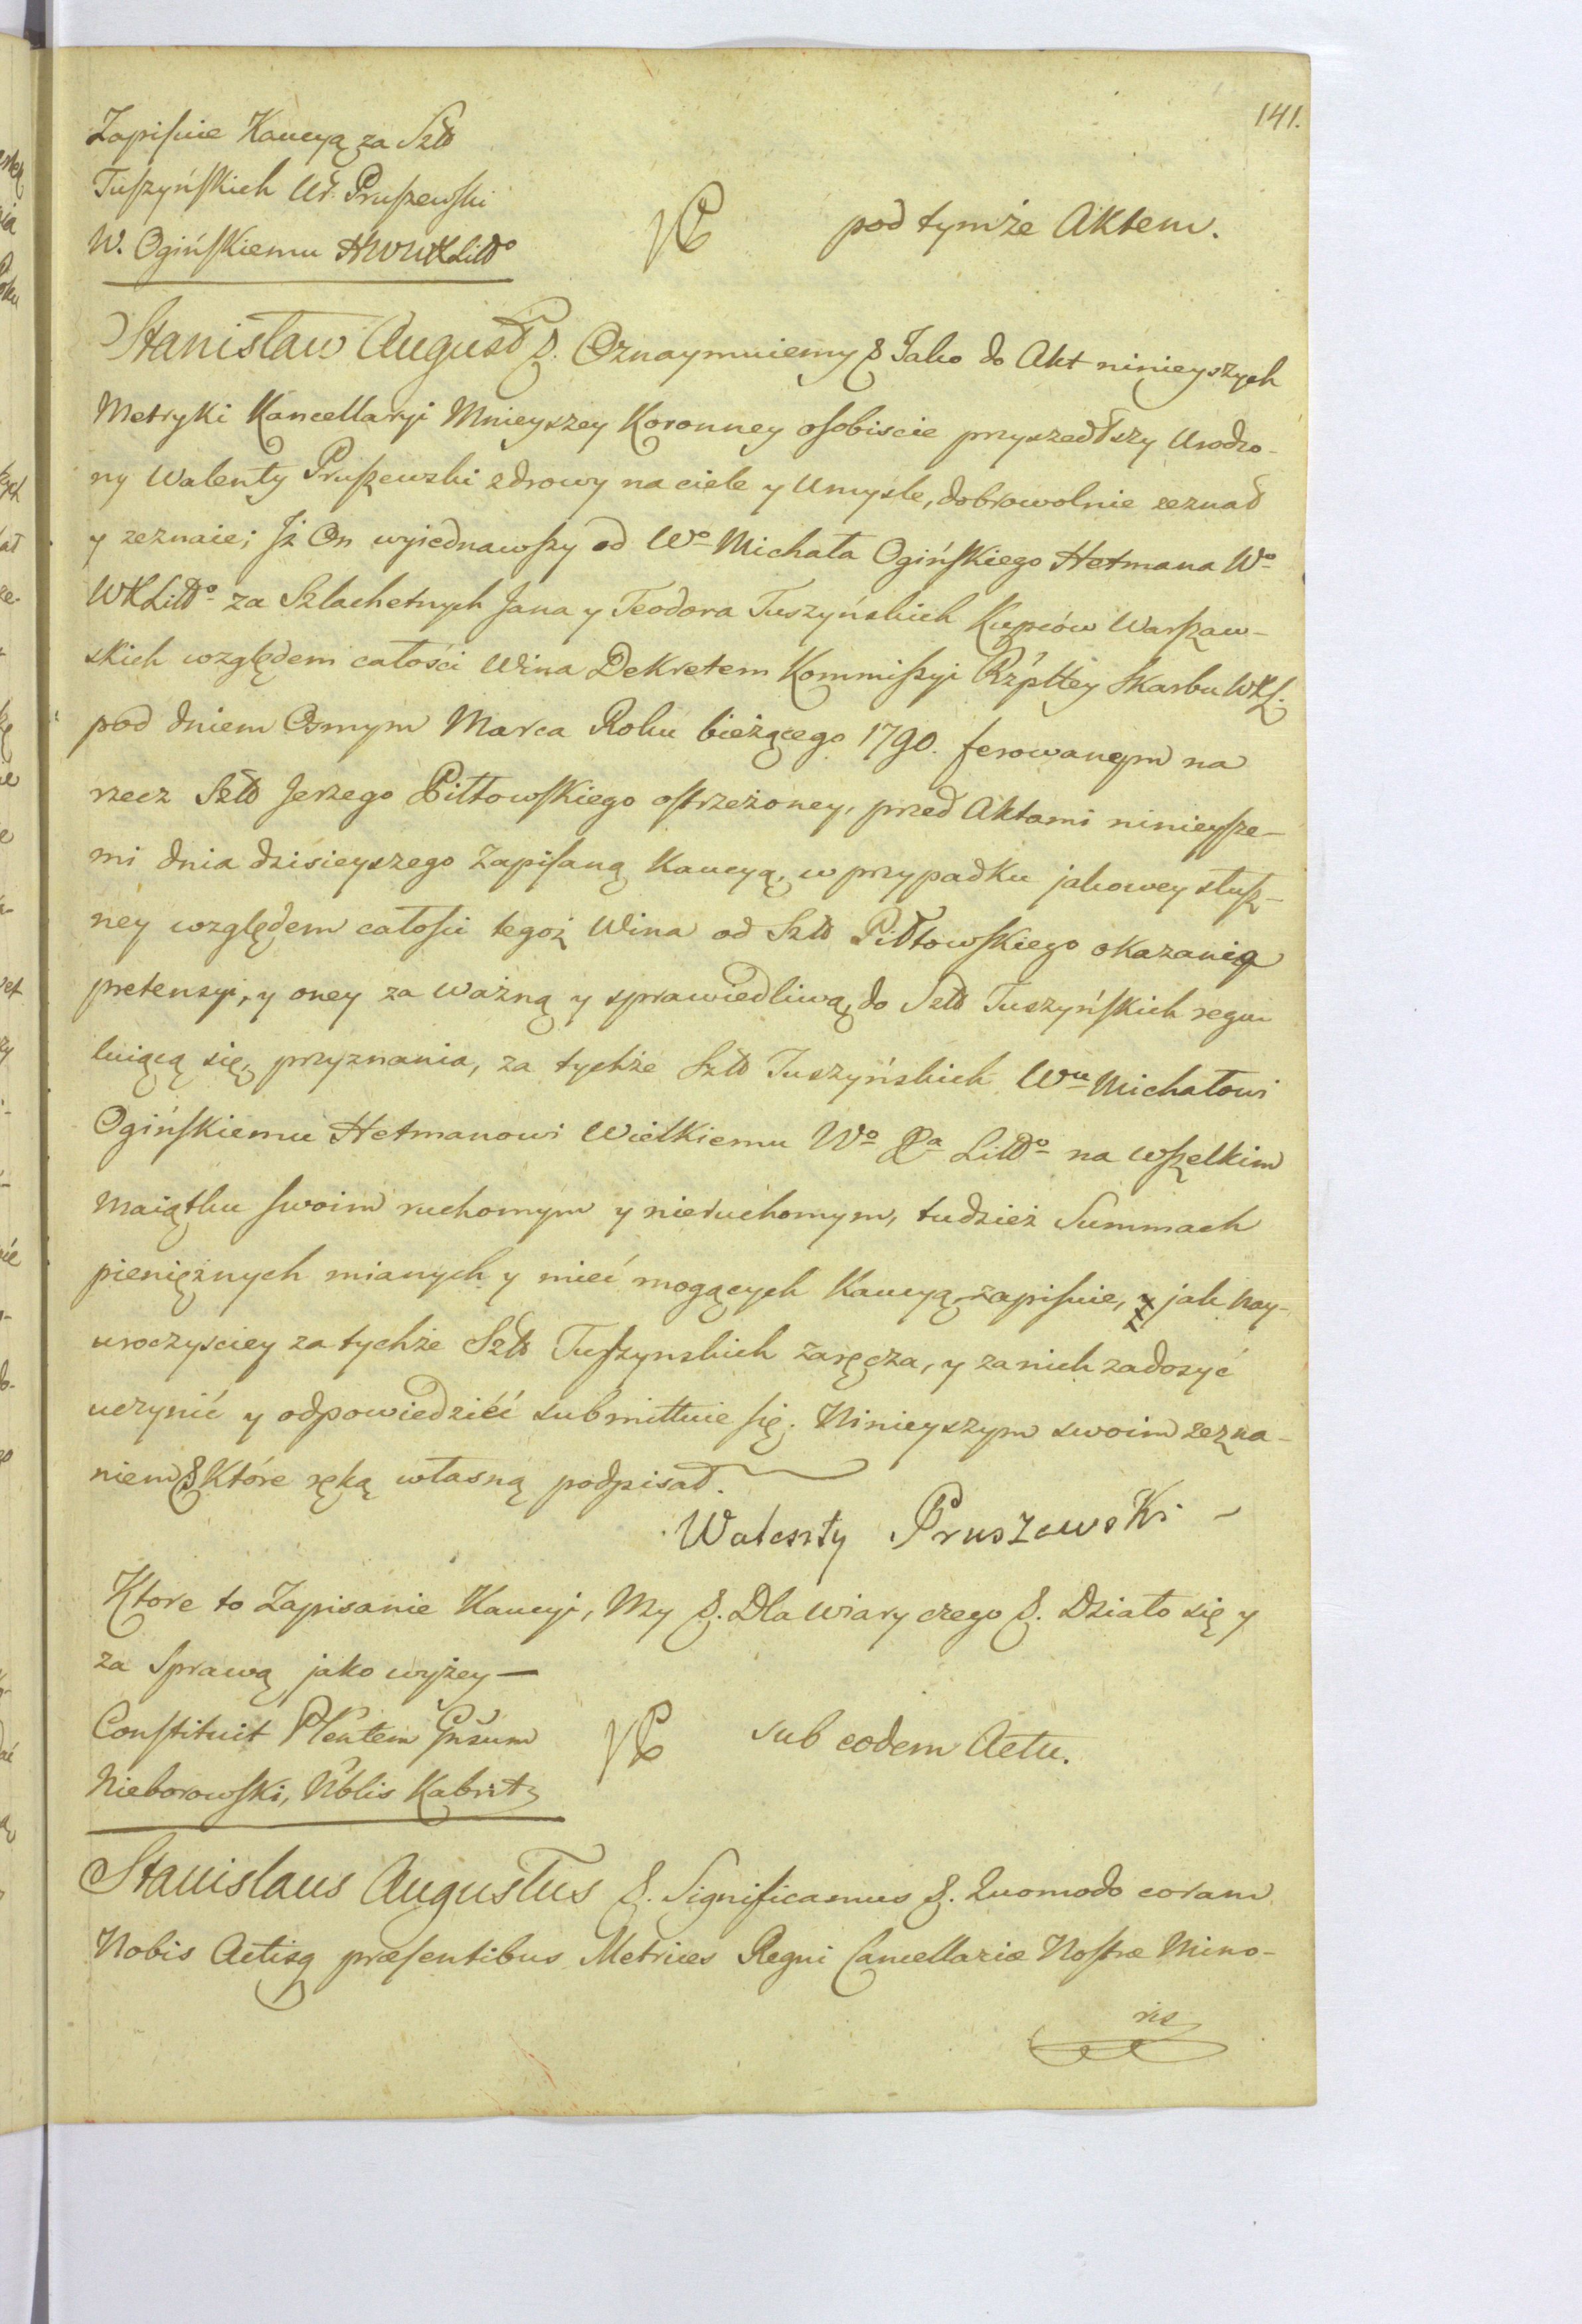 141.
Zapiſuie Kaucyą za Szł
Tuſzyńſkich Ur. Pruſzewſki
W. Ogińſkiemu HWWXLitto
pod tymże Aktem.
Stanisław August &. Oznaymuiemy & Jako do Akt ninieyszych
Metryki Kancellaryi Mnieyszey Koronney oſobiscie przyszedłszy Urodzo-
ny Walenty Pruſzewski zdrowy na ciele y Umysle, dobrowolnie zeznał
y zeznaie; Jż On wyiednawſzy od Wo Michała Ogińſkiego Hetmana Wo
WXLitto za Szlachetnych Jana y Teodora Tuszyńskich Kupców Warſzaw-
skich względem całości Wina Dekretem Kommiſsyi Rzpltey Skarbu WXL.
pod dniem Osmym Marca Roku bieżącego 1790. ferowanym na
rzecz Szł Jerzego Piłtowſkiego oſtrzeżoney, przed Aktami ninieyſze-
mi dnia dzisieyszego Zapiſaną Kaucyą, w przypadku jakowey słuſz-
ney względem całoſci tegoż Wina od Szł Piłtowſkiego okazania
pretensyi, y oney za ważną y sprawiedliwą, do Szł Tuszyńſkich regu-
luiącą się, przyznania, za tychże Szł Tuszyńskich Wu Michałowi
Ogińſkiemu Hetmanowi Wielkiemu Wo Xa Litto na wſzelkim
Maiątku ſwoim ruchomym y nieruchomym, tudzież Summach
pieniężnych mianych y mieć mogących Kaucyą zapiſuie, y jak nay-
uroczysciey za tychże Szł Tuſzynskich zaręcza, y za nich zadosyć
uczynić y odpowiedzieć submittuie ſię. Ninieyszym swoim zezna-
niem & Które ręką własną podpisał.
Walenty Pruszewski
Ktore to Zapisanie Kaucyi, My &. Dla wiary czego &. Działo się y
za Sprawą jako wyżey
Conſtituit Pleñtem Gñsum
Nieborowſki, Ñblis Kabrit
sub eodem Actu.
Stanislaus Augustus &. Significamus &. Quomodo coram
Nobis Actisq præſentibus Metrices Regni Cancellariæ Noſtræ Mino-
ris